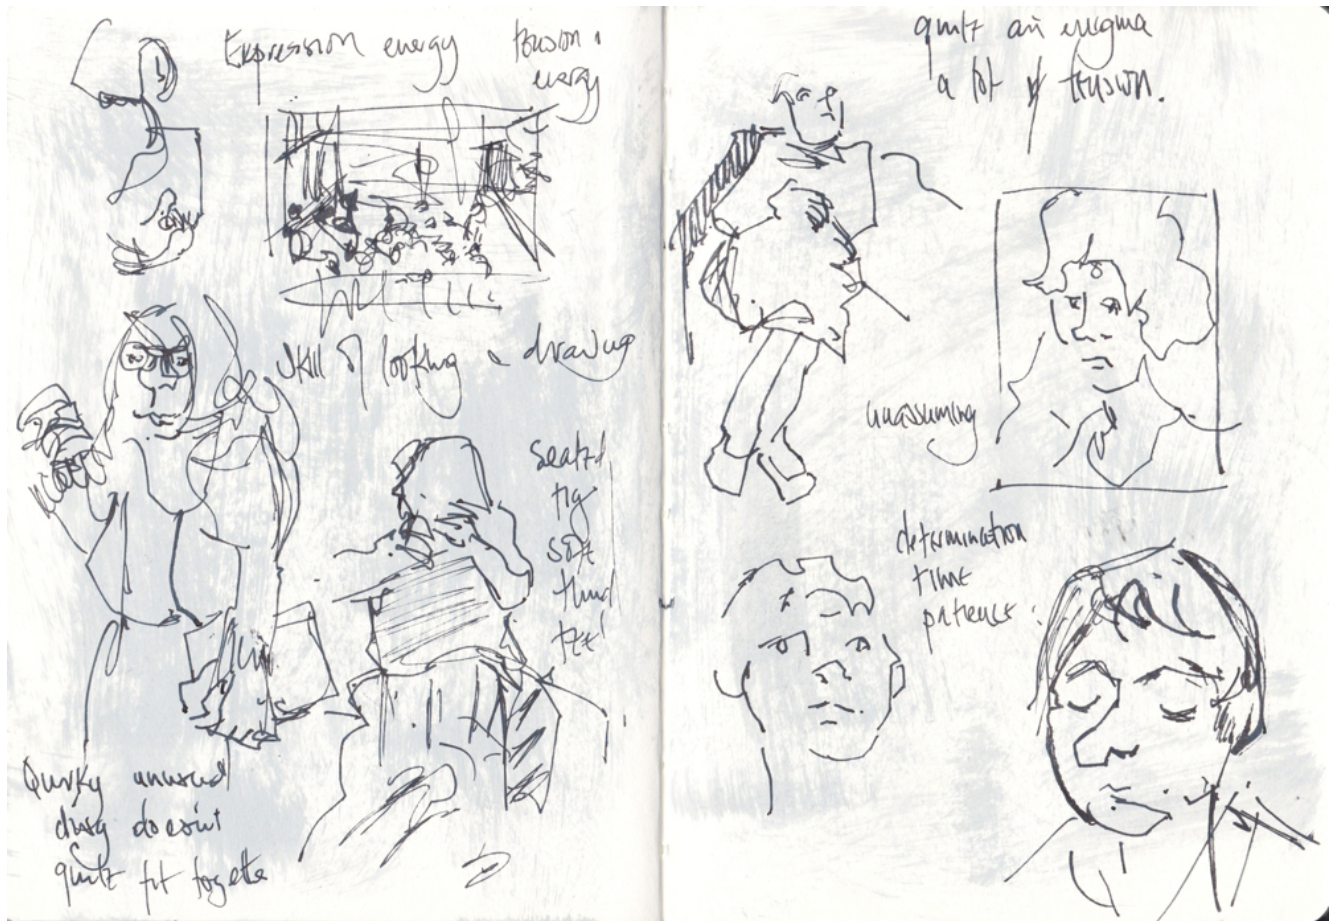 Expression energy tension.
energy
skill of looking & drawing
seated
fig
soft
Quirky unusual
doesn't
quite fit together
quite an enigma
a lot of tension.
unassuming
determination
time
patience.